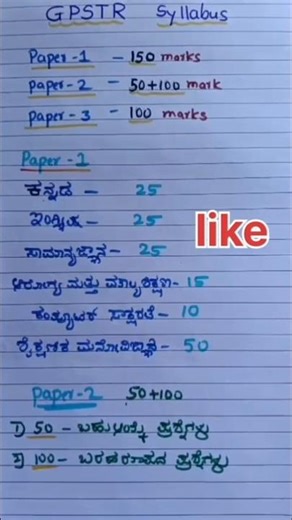 GPSTR Syllabus
Paper-1 - 150 marks
Paper-2 - 50+100 mark
Paper-3 - 100 marks
Paper-1
ಕನ್ನಡ - 25
ಇಂಗ್ಲಿಷ - 25
like
ಸಾಮಾನ್ಯಜ್ಞಾನ - 25
ಆರೋಗ್ಯ ಮತ್ತು ಮೌಲ್ಯಶಿಕ್ಷಣ - 15
ಕಂಪ್ಯೂಟರ ಸಾಕ್ಷರತೆ - 10
ಶೈಕ್ಷಣಿಕ ಮನೋವಿಜ್ಞಾನ - 50
Paper-2 50+100
1) 50 - ಬಹುಆಯ್ಕೆ ಪ್ರಶ್ನೆಗಳು
2) 100 - ಬರವಣಿಗೆಯ ಪ್ರಶ್ನೆಗಳು